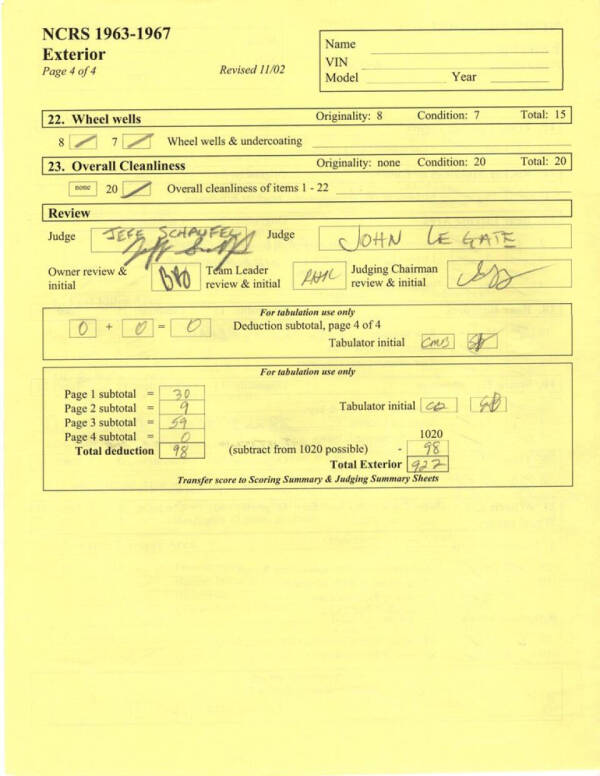 NCRS 1963-1967
Exterior
Page 4 of 4 Revised 11/02
Name
VIN
Model Year
22. Wheel wells Originality: 8 Condition: 7 Total: 15
8 7 Wheel wells & undercoating
23. Overall Cleanliness Originality: none Condition: 20 Total: 20
none 20 Overall cleanliness of items 1 - 22
Review
Judge JEFF SCHAUFEL Judge JOHN LE GATE
Owner review & initial Team Leader review & initial Judging Chairman review & initial
For tabulation use only
0 + 0 = 0 Deduction subtotal, page 4 of 4
Tabulator initial
For tabulation use only
Page 1 subtotal = 30
Page 2 subtotal = 9
Page 3 subtotal = 59
Page 4 subtotal = 0
Tabulator initial
1020
Total deduction = 98 (subtract from 1020 possible) - 98
Total Exterior 922
Transfer score to Scoring Summary & Judging Summary Sheets